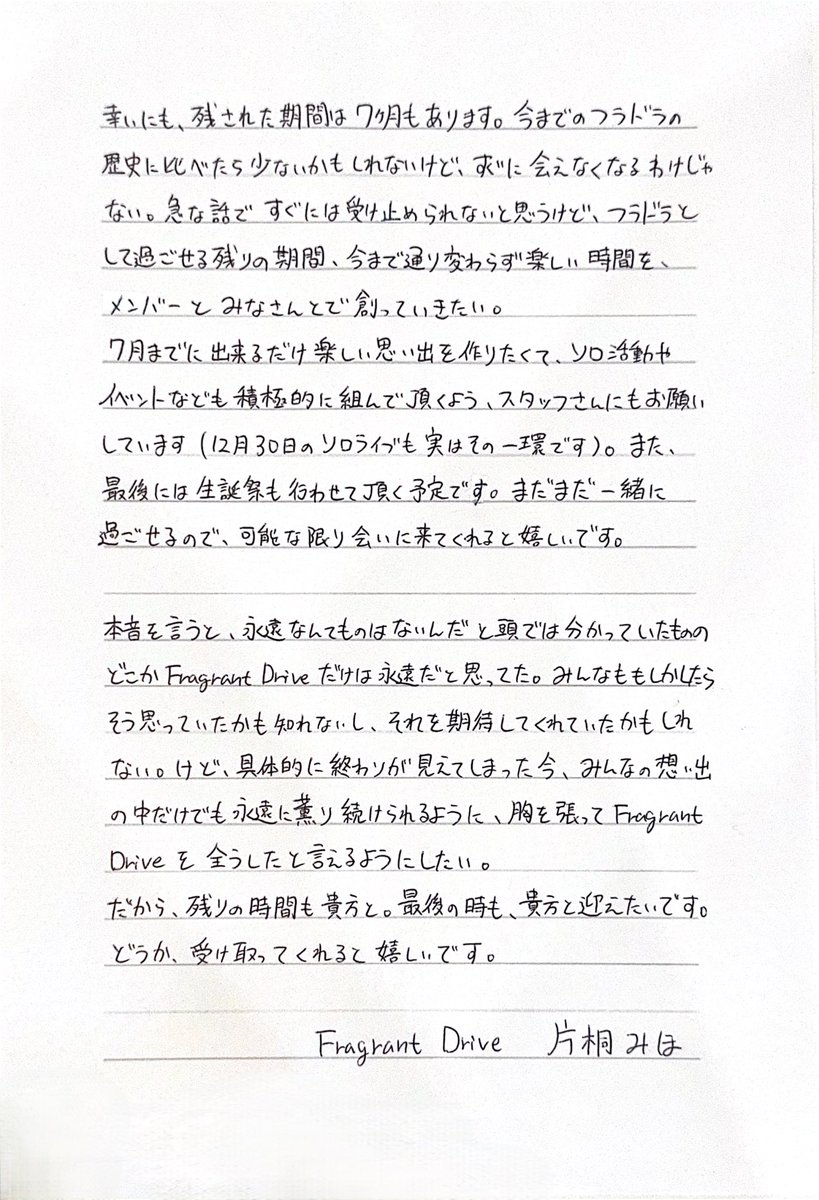 幸いにも、残された期間は7ヶ月もあります。今までのフラドラの
歴史に比べたら少ないかもしれないけど、すぐに会えなくなるわけじゃ
ない。急な話ですぐには受け止められないと思うけど、フラドラと
して過ごせる残りの期間、今まで通り変わらず楽しい時間を、
メンバーとみなさんとで創っていきたい。
7月までに出来るだけ楽しい思い出を作りたくて、ソロ活動や
イベントなども積極的に組んで頂くよう、スタッフさんにもお願い
しています(12月30日のソロライブも実はその一環です)。また、
最後には生誕祭も行わせて頂く予定です。まだまだ一緒に
過ごせるので、可能な限り会いに来てくれると嬉しいです。
本音を言うと、永遠なんてものはないんだと頭では分かっていたものの
どこかFragrant Driveだけは永遠だと思ってた。みんなももしかしたら
そう思っていたかも知れないし、それを期待してくれていたかもしれ
ない。けど、具体的に終わりが見えてしまった今、みんなの想い出
の中だけでも永遠に薫り続けられるように、胸を張ってFragrant
Driveを全うしたと言えるようにしたい。
だから、残りの時間も貴方と。最後の時も、貴方と迎えたいです。
どうか、受け取ってくれると嬉しいです。
Fragrant Drive 片桐みほ